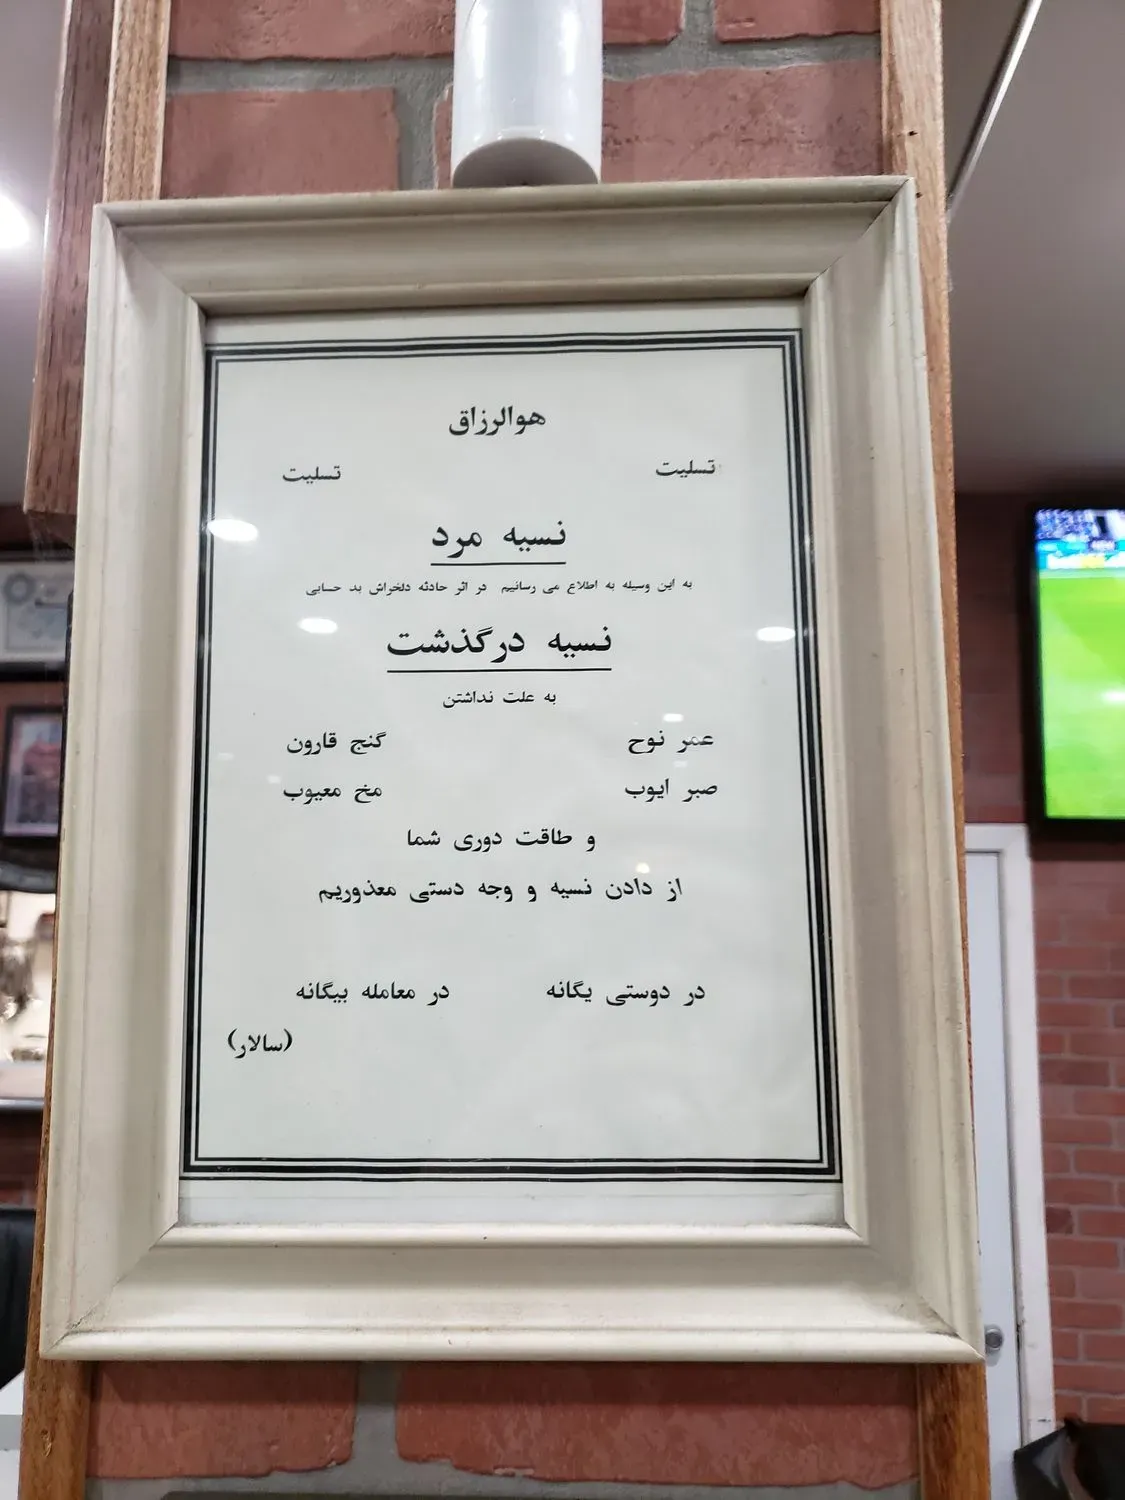 هوالرزاق
تسلیت تسلیت
نسیه مرد
به این وسیله به اطلاع می رسانیم در اثر حادثه دلخراش بد حسابی
نسیه درگذشت
به علت نداشتن
عمر نوح گنج قارون
صبر ایوب مخ معیوب
و طاقت دوری شما
از دادن نسیه و وجه دستی معذوریم
در دوستی یگانه در معامله بیگانه
(سالار)